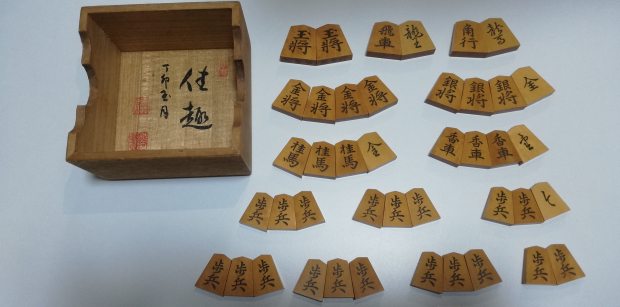 佳趣
丁卯
王将 玉将 飛車 龍王 角行 龍馬
金将 金将 金将 金将 銀将 銀将 銀将 金
桂馬 桂馬 桂馬 金 香車 香車 香車
歩兵 歩兵 歩兵 歩兵 歩兵 歩兵 歩兵 歩兵 と
歩兵 歩兵 歩兵 歩兵 歩兵 歩兵 歩兵 歩兵 歩兵 歩兵 歩兵